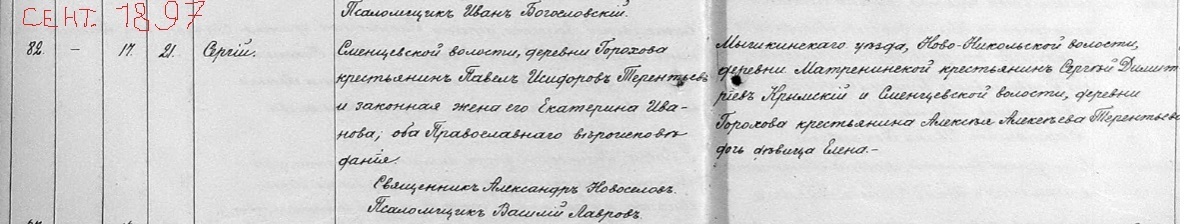 СЕНТ. 1897
Псаломщикъ Иванъ Богословскій.
82. - 17. 21. Сергій.
Сменцевской волости, деревни Горохова
крестьянинъ Павелъ Исидоровъ Терентьевъ
и законная жена его Екатерина Ива-
нова; оба Православнаго вѣроисповѣ
данія.
Священникъ Александръ Новоселовъ.
Псаломщикъ Василій Лавровъ.
Мышкинскаго уѣзда, Ново-Никольской волости,
деревни Матренинской крестьянинъ Сергѣй Димит
ріевъ Крымскій и Сменцевской волости, деревни
Горохова крестьянина Алексѣя Алексѣева Терентьева
дочь дѣвица Елена.-